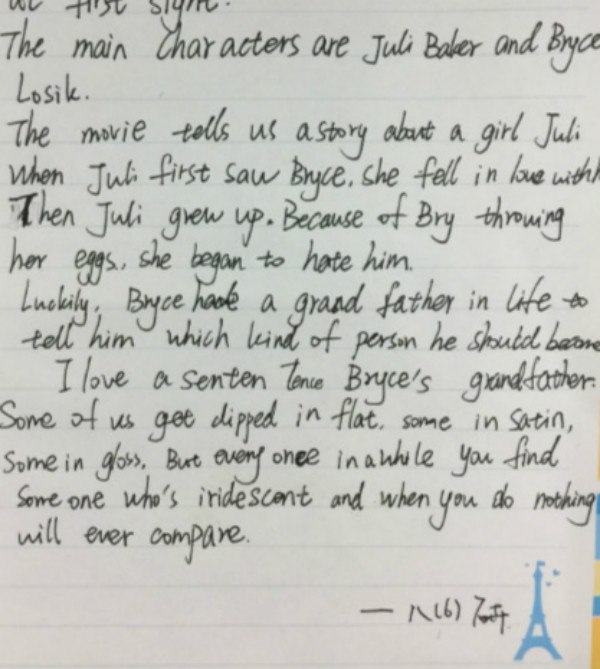 at first sight.
The main characters are Juli Baker and Bryce
Losik.
The movie tells us a story about a girl Juli
When Juli first saw Bryce, she fell in love with
Then Juli grew up. Because of Bry throwing
her eggs, she began to hate him.
Luckily, Bryce have a grand father in life to
tell him which kind of person he should become
I love a senten Tence Bryce's grandfather:
Some of us get dipped in flat, some in satin,
Some in gloss. But every once in a while you find
Some one who's iridescent and when you do nothing
will ever compare.
— 八(6)